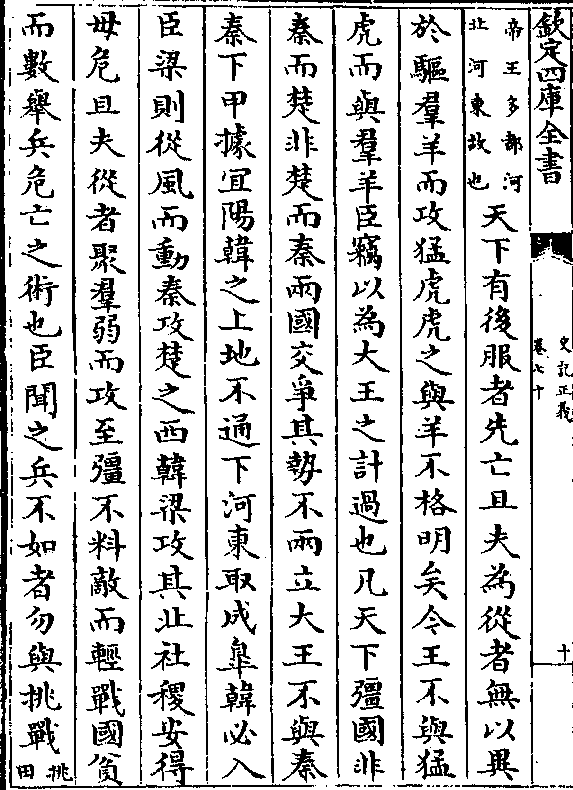 欽定四庫全書
史記正義
卷七十
十
帝王多都河
北河東故也
天下有後服者先亡且夫為從者無以異
於驅羣羊而攻猛虎虎之與羊不格明矣今王不與猛
虎而與羣羊臣竊以為大王之計過也凡天下彊國非
秦而楚非楚而秦兩國交爭其勢不兩立大王不與秦
秦下甲據宜陽韓之上地不通下河東取成臯韓必入
臣梁則從風而動秦攻楚之西韓梁攻其北社稷安得
毋危且夫從者聚羣弱而攻至彊不料敵而輕戰國貧
而數舉兵危亡之術也臣聞之兵不如者勿與挑戰
挑
田